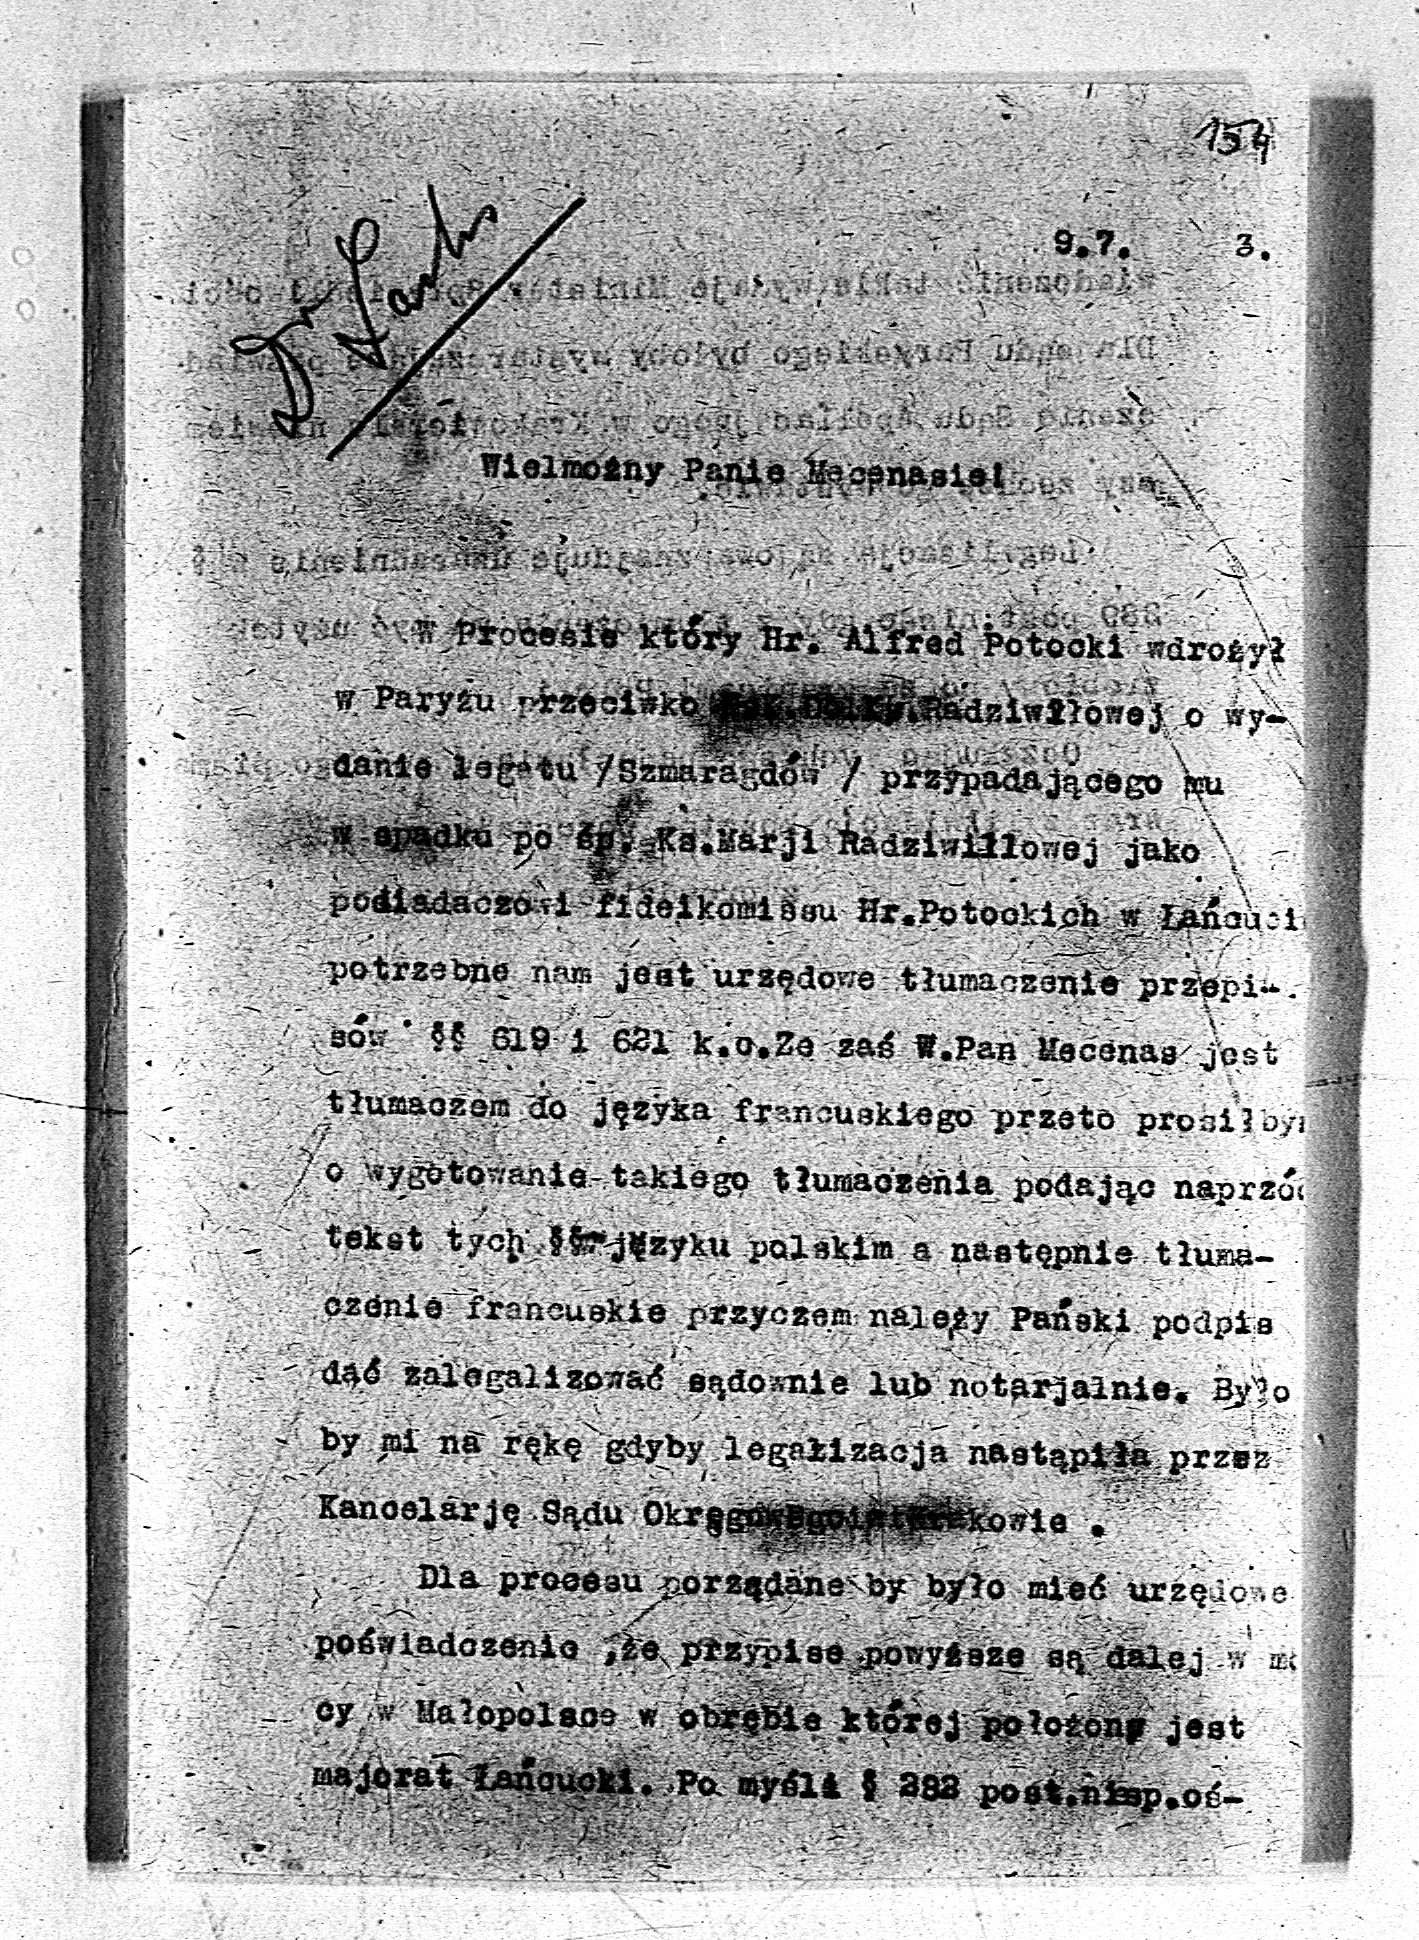 154
9.7. 3.
Dr
Wielmożny Panie Mecenasie!
W Procesie który Hr. Alfred Potocki wdrożył
w Paryżu przeciwko Radziwiłłowej o wy-
danie legatu /Szmaragdów / przypadającego mu
w spadku po śp. Ks.Marji Radziwiłłowej jako
posiadaczowi fideikomissu Hr.Potockich w Łańcuci
potrzebne nam jest urzędowe tłumaczenie przepi-
sów §§ 619 i 621 k.c.Ze zaś W.Pan Mecenas jest
tłumaczem do języka francuskiego przeto prosiłbym
o wygotowanie takiego tłumaczenia podając naprzód
tekst tych §§ języku polskim a następnie tłuma-
czenie francuskie przyczem należy Pański podpis
dąć zalegalizować sądownie lub notarjalnie. Było
by mi na rękę gdyby legalizacja nastąpiła przez
Kancelarję Sądu Okręgowego w Krakowie .
Dla procesu porządane by było mieć urzędowe
poświadczenie ,że przypise powyższe są dalej w mo
cy w Małopolsce w obrębie której położony jest
majorat Łańcucki. Po myśli § 282 post.niesp.oś-